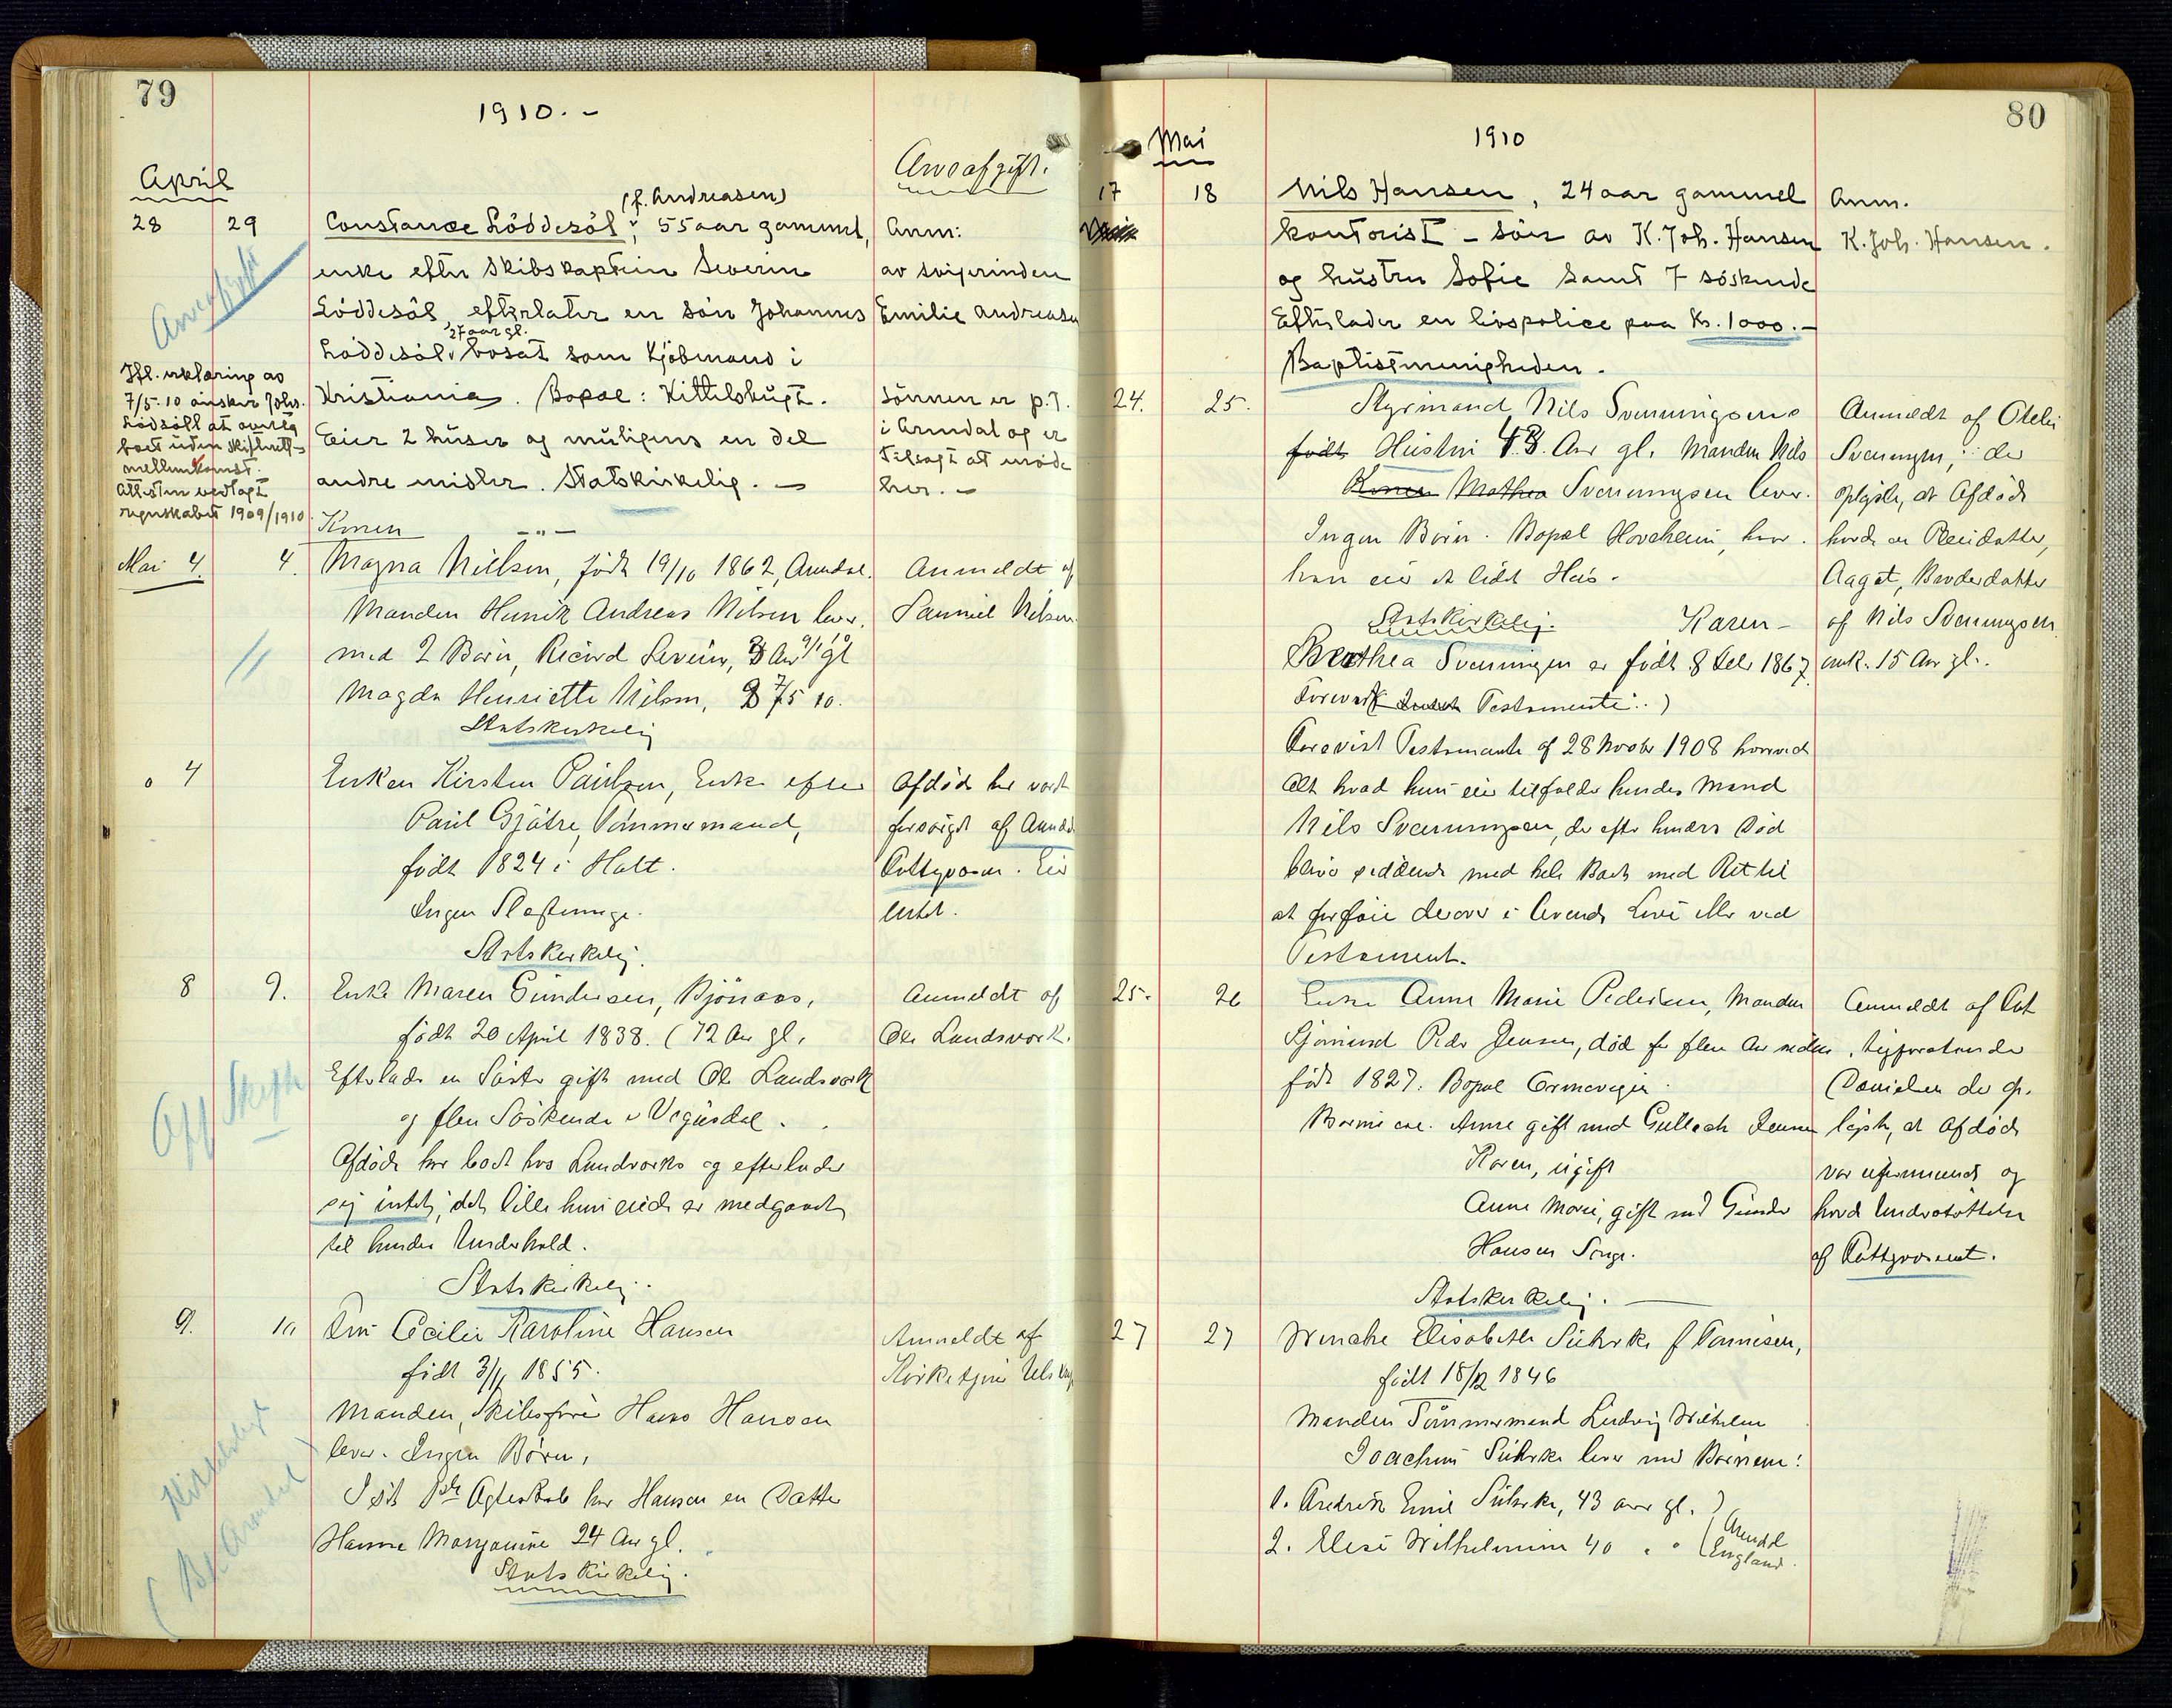 79
1910. -
April
Arveafgift.
(f. Andreasen)
28 29 Constance Löddesöl, 55 aar gammel, Anm:
enke efter Skibskaptein Severin av svigerinden
Löddesöl, efterlater en sön Johannes Emilie Andreasen
27 aar gl.
Löddesöl, bosat som Kjöbmand i
Kristiania. Bopæl: Kittelsbugt. Sönnen er p.t.
Eier 2 huser og muligens en del i Arendal og er
tilsagt at möde
andre midler. Statskirkelig. - her. -
Arveafgift
Ifl. erklæring av
7/5-10 önsker Johs.
Lödsöll at overta
boet uden skifteret-
mellemkomst.
Attesten vedlagt
regnskabet 1909/1910
Konen - " -
Mai 4. 4. Magna Nielsen, födt 19/10 1862, Arendal. Anmeldt af
Manden Henrik Andreas Nilsen lever. Samuel Nilsen.
med 2 Börn, Ricard Severin, Aar gl
Magda Henriette Nilsen,
Statskirkelig
4 Enken Kirsten Paulsen, Enke efter Afdöde har været
Paul Gjötre, Tömmermand, forsörget af Arendal
födt 1824 i Holt. Fattigvæsen. Eier
Ingen Slægtninge. Intet.
Statskirkelig.
8 9. Enke Maren Gundersen, Bjönaas, Anmeldt af
födt 20 April 1838. (72 Aar gl. Ole Landsverk.
Efterlader en Söster gift med Ole Landsverk
og flere Söskende i Vegusdal.
Afdöde har boet hos Landverks og efterlader
sig intet, det lille hun eiede er medgaaet
til hendes Underhold.
Statskirkelig.
Off Skifte
9. 10 Fru Cecilie Karoline Hansen Anmeldt af
födt 3/4 1855. Kirketjener
Manden, Skibsförer Hans Hansen
lever. Ingen Börn.
I sit 1ste Ægteskab har Hansen en Datter
Hanna Marganine 24 Aar gl.
Statskirkelig.
80
Mai
1910
17 18 Nils Hansen, 24 aar gammel Anm.
kontorist - sön av K. Joh. Hansen K. Joh. Hansen.
og hustru Sofie samt 7 söskende
Efterlader en livspolice paa Kr. 1000.-
Baptistmenigheden.
24. 25. Styrmand Nils Svenningsens Anmeldt af Otelie
födt Hustru 43 Aar gl. Manden Nils Svenningsen, der
Konen Mathea Svenningsen lever. oplyste, at Afdöde
Ingen Börn. Bopæl Hovekeim, hvor havde en Pleiedatter,
han eier et lidet Hus. Aagot, Broderdatter
Statskirkelig. Karen- af Nils Svenningsen
Berthea Svenningsen er födt 8 Febr 1867 omk. 15 Aar gl.
Forevist Testamente.)
Forevist Testamente af 28 Novbr 1908 hvorved
Alt hvad hun eier tilfalder hendes Mand
Nils Svenningsen, der efter hendes Död
bliver siddende med hele Boet med Ret til
at forföie derover i levende Live eller ved
Testament.
25. 26 Enke Anne Marie Pedersen, Manden Anmeldt af Fat
Sjömand Peder Jensen, död for flere Aar siden. tigforstander
födt 1827. Bopæl Danielsen der op-
Börn: Anne gift med Gullach Jensen lyste, at Afdöde
Karen, ugift var uformuende og
Anne Marie, gift med Gunder havde Understöttelse
Hansen Songe. af Fattigvæsenet.
Statskirkelig.
27 27 Wenche Elisabeth Suhrke f Tönnesen,
födt 18/12 1846
Manden Tömmermand Ludvig Wilhelm
Joachim Suhrke lever med Börnene:
1. Fredrik Emil Suhrke, 43 aar gl. Arendal
2. Elise Wilhelmine 40 " " England.